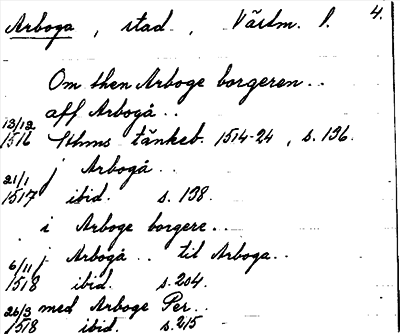 Arboga, stad, Västm. l. 4.
Om then Arboge borgeren..
aff Arbogå..
13/12
1516 Sthms tänkeb. 1514-24, s. 136.
j Arbogå..
21/1
1517 ibid. s. 138.
i Arboge borgere..
j Arbogå.. til Arboga..
6/11
1518 ibid. s. 204.
med Arboge Per..
26/3
1518 ibid. s. 215